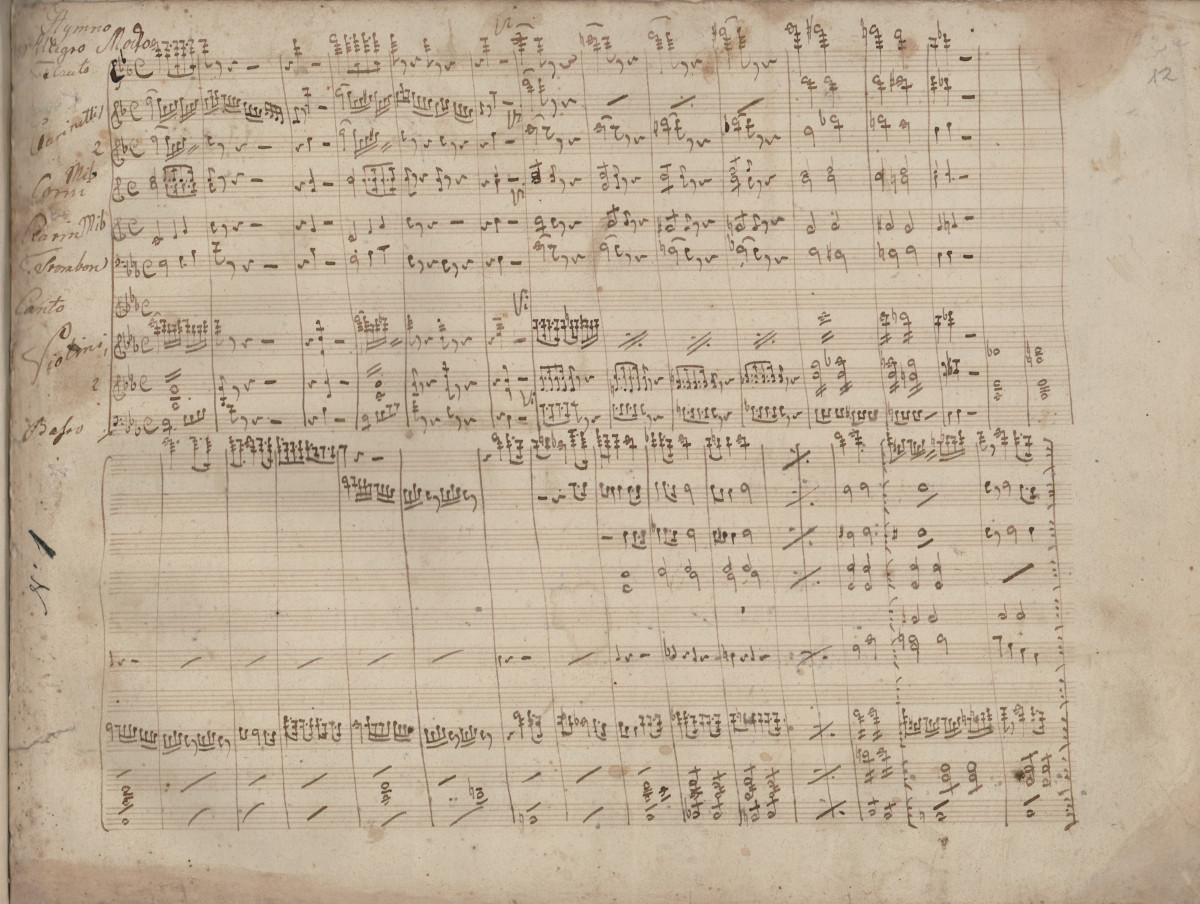 Hymno
Allegro Modto
Flauto
Clarinetti 1
2
Corni Mib
Clarin Mib
Trombon
Canto
Violini 1
2
Basso
Vi
Nº 1
12